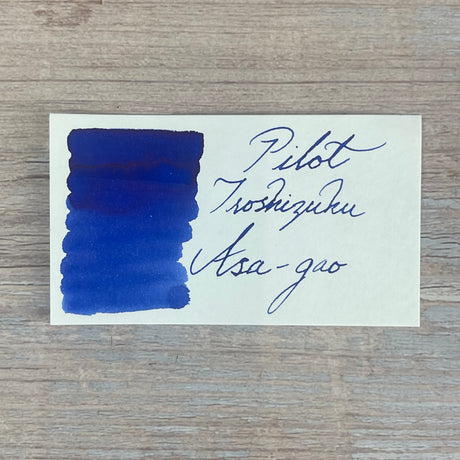 Pilot
Iroshizuku
Asa-gao